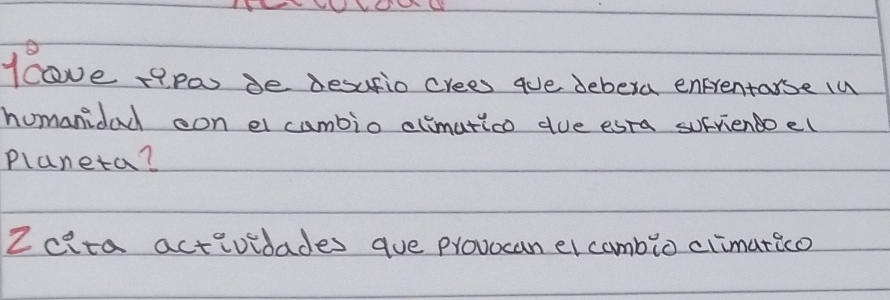 Actividad
1º ¿que tipas de desafio crees que debera enfrentarse la
humanidad con el cambio climatico que esta sufriendo el
Planeta?
2 cita actividades que provocan el cambio climatico